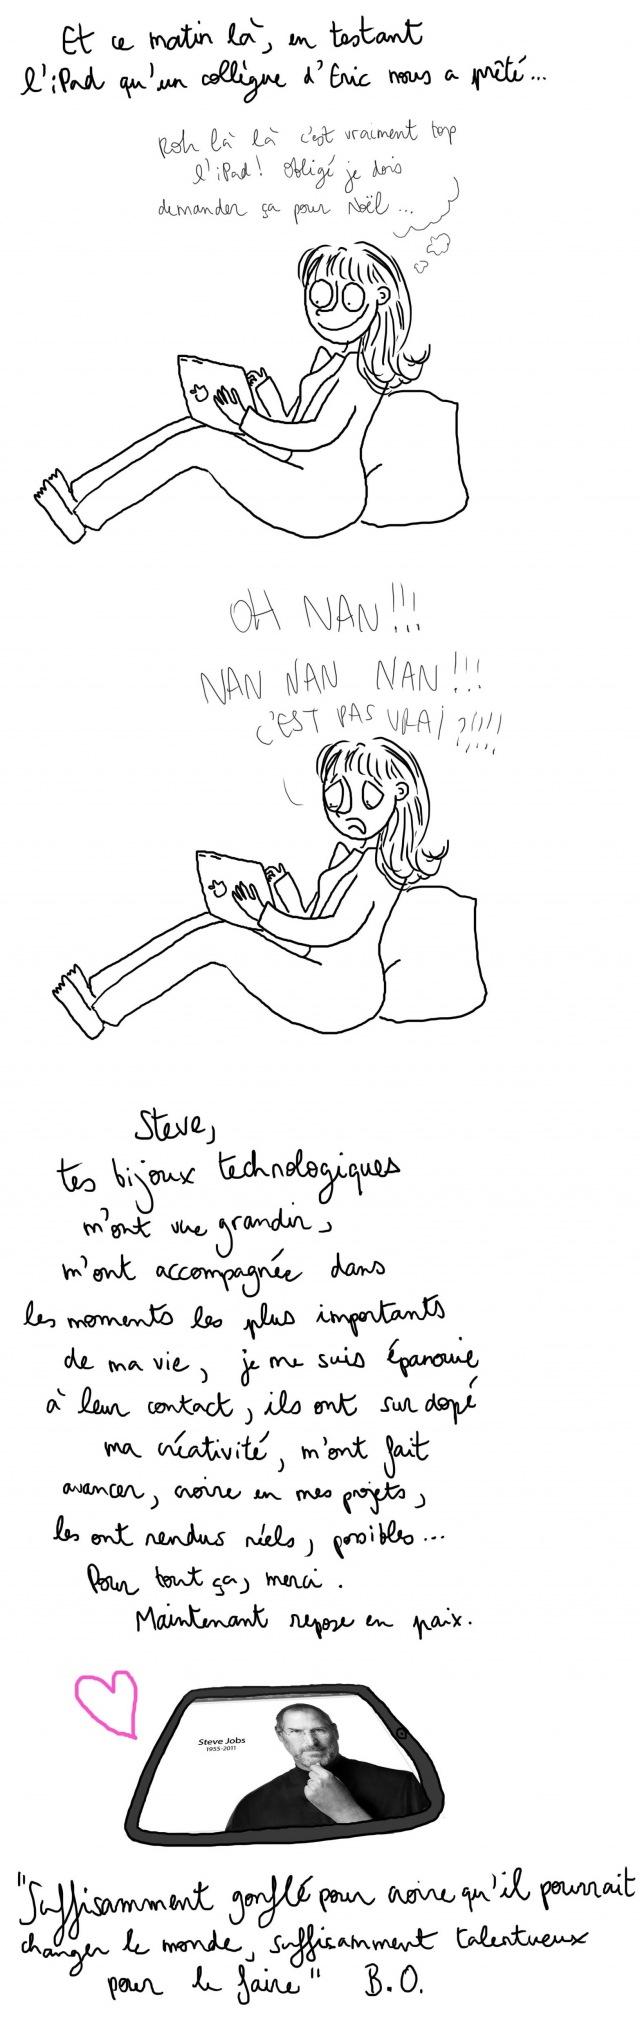 Et ce matin là, en testant
l'iPad qu'un collègue d'Eric nous a prêté...
Roh là là c'est vraiment top
l'iPad! Obligé je dois
demander ça pour Noël...
OH NAN!!!
NAN NAN NAN!!!
C'EST PAS VRAI ?!!!!
Steve,
tes bijoux technologiques
m'ont vue grandir,
m'ont accompagnée dans
les moments les plus importants
de ma vie, je me suis épanouie
à leur contact, ils ont sur dopé
ma créativité, m'ont fait
avancer, croire en mes projets,
les ont rendus réels, possibles...
Pour tout ça, merci.
Maintenant repose en paix.
Steve Jobs
1955-2011
"Suffisamment gonflé pour croire qu'il pourrait
changer le monde, suffisamment talentueux
pour le faire" B.O.